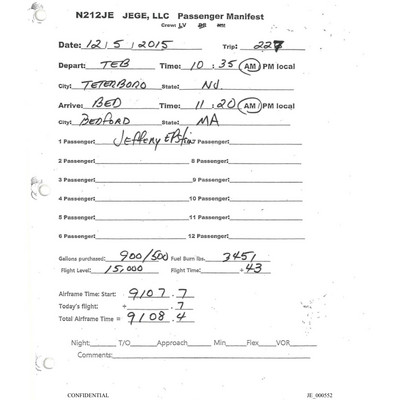 N212JE JEGE, LLC Passenger Manifest
Crew: LV
Date: 12/5/2015 Trip: 227
Depart: TEB Time: 10:35 AM PM local
City: TETERBORO State: NJ
Arrive: BED Time: 11:20 AM PM local
City: BEDFORD State: MA
1 Passenger: Jeffery Epstien 7 Passenger:
2 Passenger: 8 Passenger:
3 Passenger: 9 Passenger:
4 Passenger: 10 Passenger:
5 Passenger: 11 Passenger:
6 Passenger: 12 Passenger:
Gallons purchased: 900/500 Fuel Burn lbs. 3451
Flight Level: 15,000 Flight Time: :43
Airframe Time: Start: 9107.7
Today's flight: + .7
Total Airframe Time = 9108.4
Night: T/O Approach Min Flex VOR
Comments:
CONFIDENTIAL JE_000552